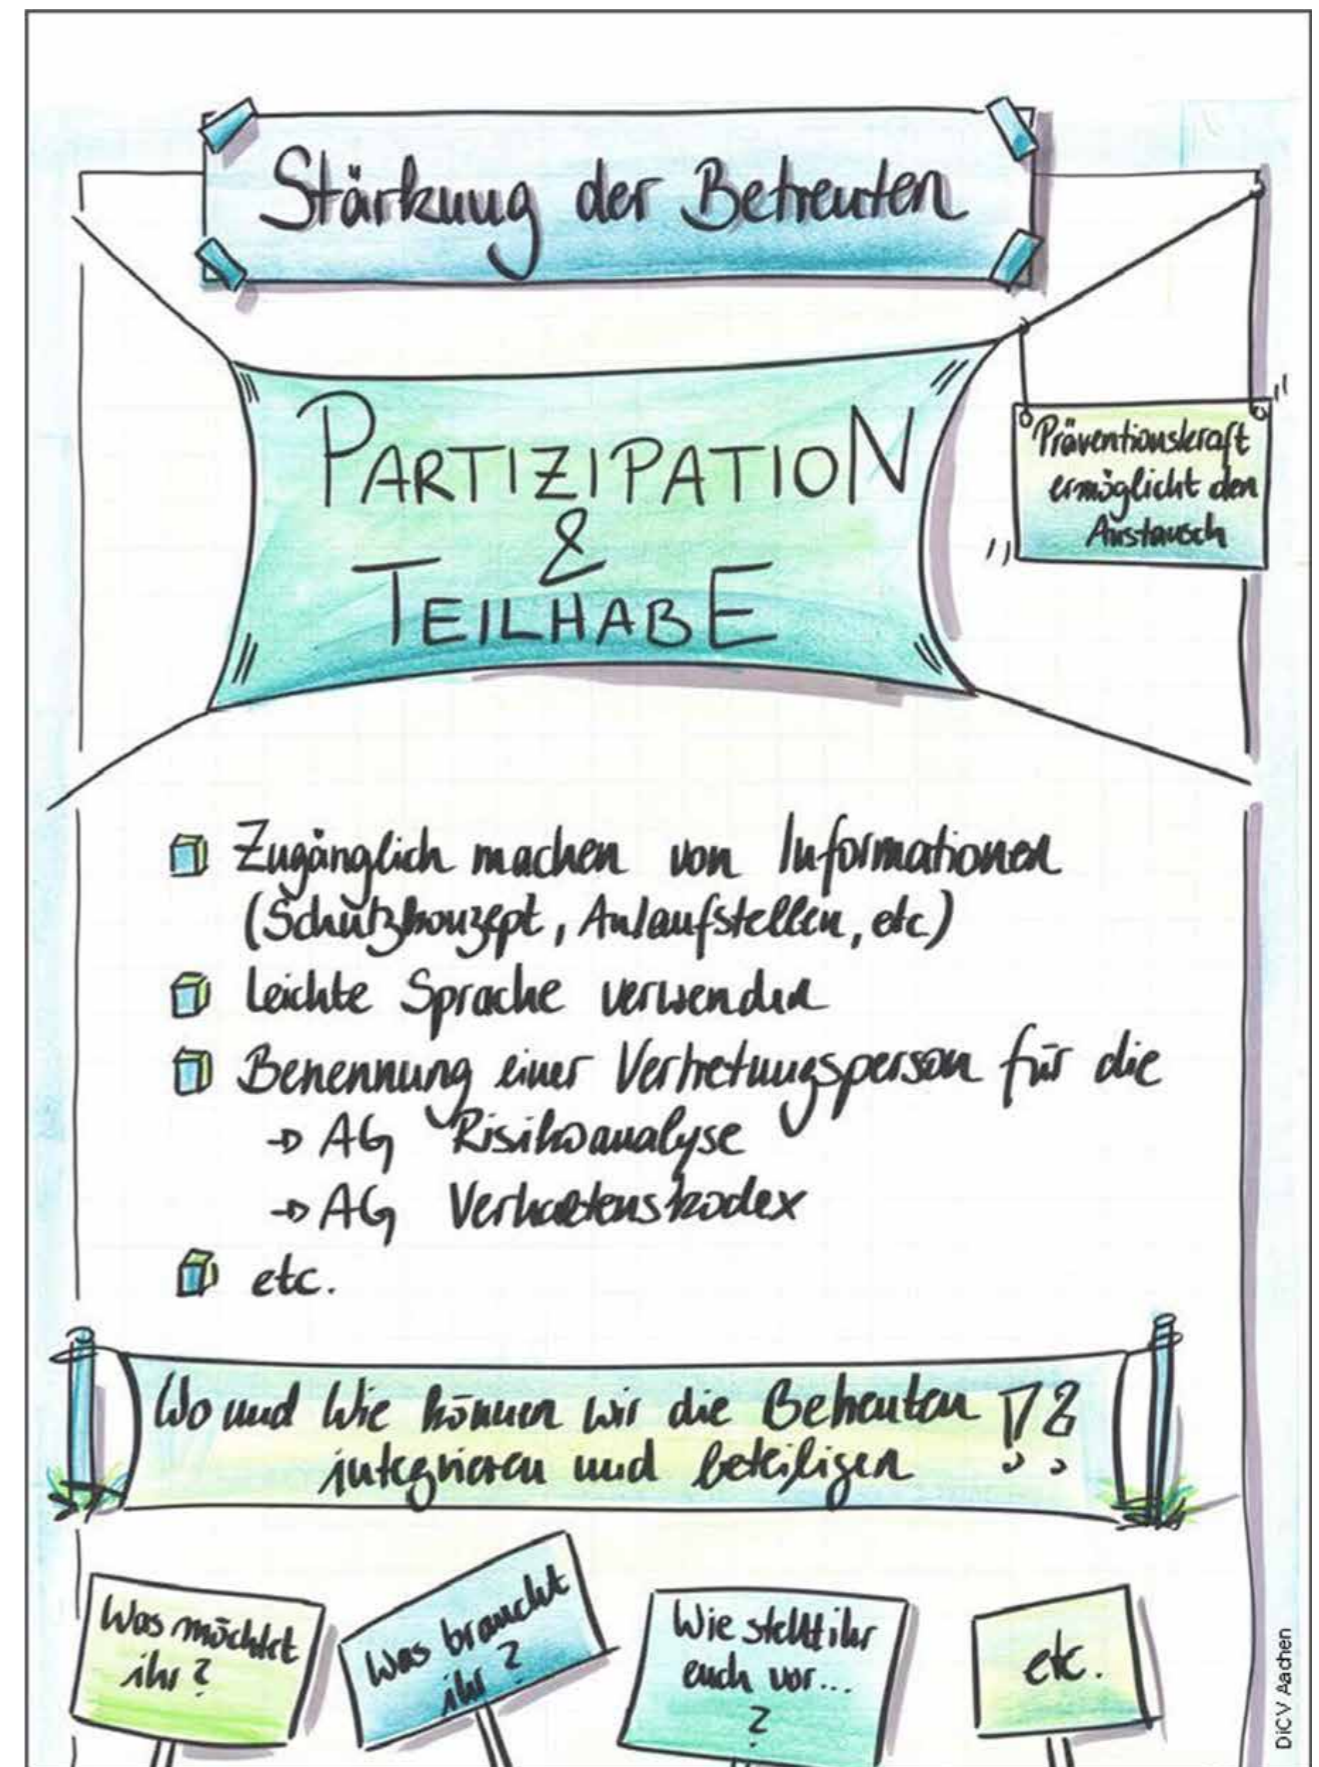 Stärkung der Betreuten
PARTIZIPATION
&
TEILHABE
Präventionskraft
ermöglicht den
Austausch
Zugänglich machen von Informationen
(Schutzkonzept, Anlaufstellen, etc)
leichte Sprache verwenden
Benennung einer Vertretungsperson für die
→ AG Risikoanalyse
→ AG Verhaltenskodex
etc.
Wo und Wie können wir die Betreuten !?
integrieren und beteiligen
Was möchtet
ihr?
Was braucht
ihr?
Wie stellt ihr
euch vor...
?
etc.
DiCV Aachen